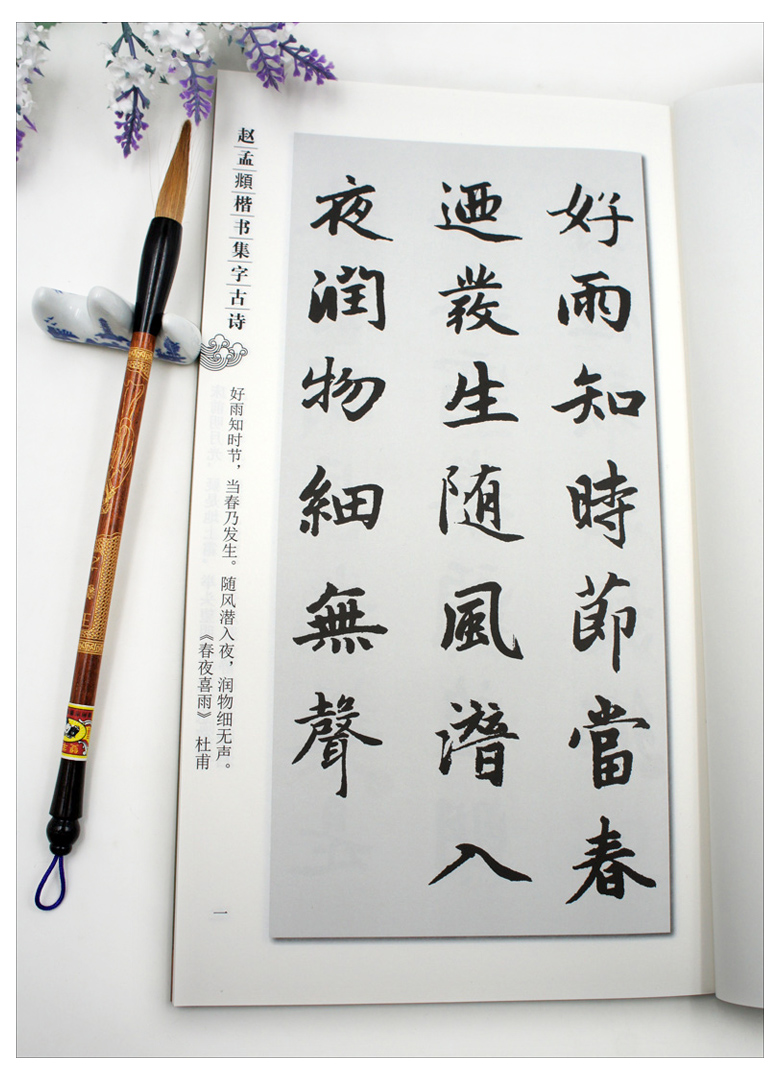 好雨知時節當春
迺發生随風潛入
夜潤物細無聲
赵孟頫楷书集字古诗
好雨知时节，当春乃发生。随风潜入夜，润物细无声。
《春夜喜雨》 杜甫
一